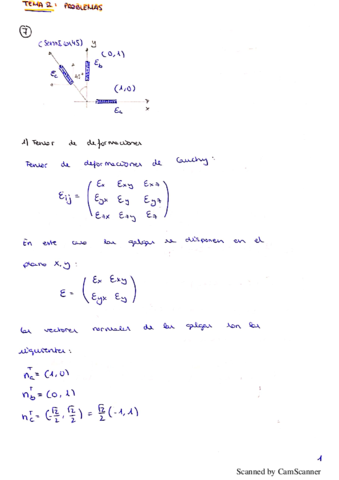 TEMA 2: PROBLEMAS
7
(-sen45, cos45)
y
(0,1)
Ec
45°
Eb
(1,0)
x
Ea
1) Tensor de deformaciones
Tensor de deformaciones de Cauchy:
Eij = ( Ex Exy Exz
Eyx Ey Eyz
Ezx Ezy Ez )
En este caso las galgas se disponen en el
plano x,y:
E = ( Ex Exy
Eyx Ey )
Los vectores normales de las galgas son los
siguientes:
n_c^T = (1,0)
n_b^T = (0,1)
n_c^T = (-√2/2, √2/2) = √2/2 (-1,1)
1
Scanned by CamScanner